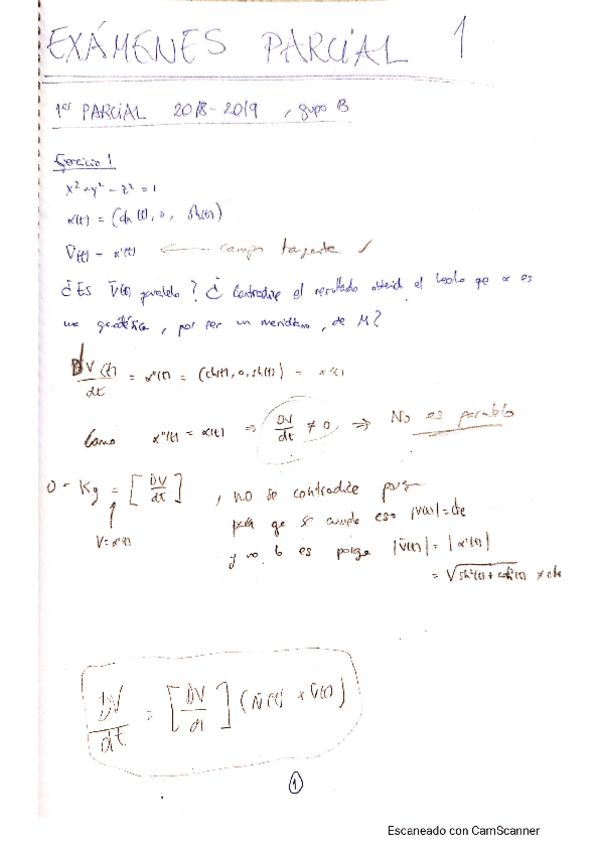 EXÁMENES PARCIAL 1
1er PARCIAL 2018-2019, grupo B
Ejercicio 1
x² + y² - z² = 1
α(t) = (ch(t), 0, sh(t))
V̄(t) = α'(t) ← campo tangente ✓
¿Es V̄(t) paralelo? ¿Contradice el resultado el hecho que α es
una geodésica, por ser un meridiano, de M?
dV(t)/dt = α''(t) = (ch(t), 0, sh(t)) = α(t)
Como α''(t) = α(t) ⇒ DV/dt ≠ 0 ⇒ No es paralelo
0 = Kg = [DV/dt], no se contradice porque
V=α'(t) para que se cumpla eso |V(t)| = cte
y no lo es porque |V̄(t)| = |α'(t)|
= √sh²(t) + ch²(t) ≠ cte
DV/dt = [DV/dt] (N̄(t) × V̄(t))
1
Escaneado con CamScanner